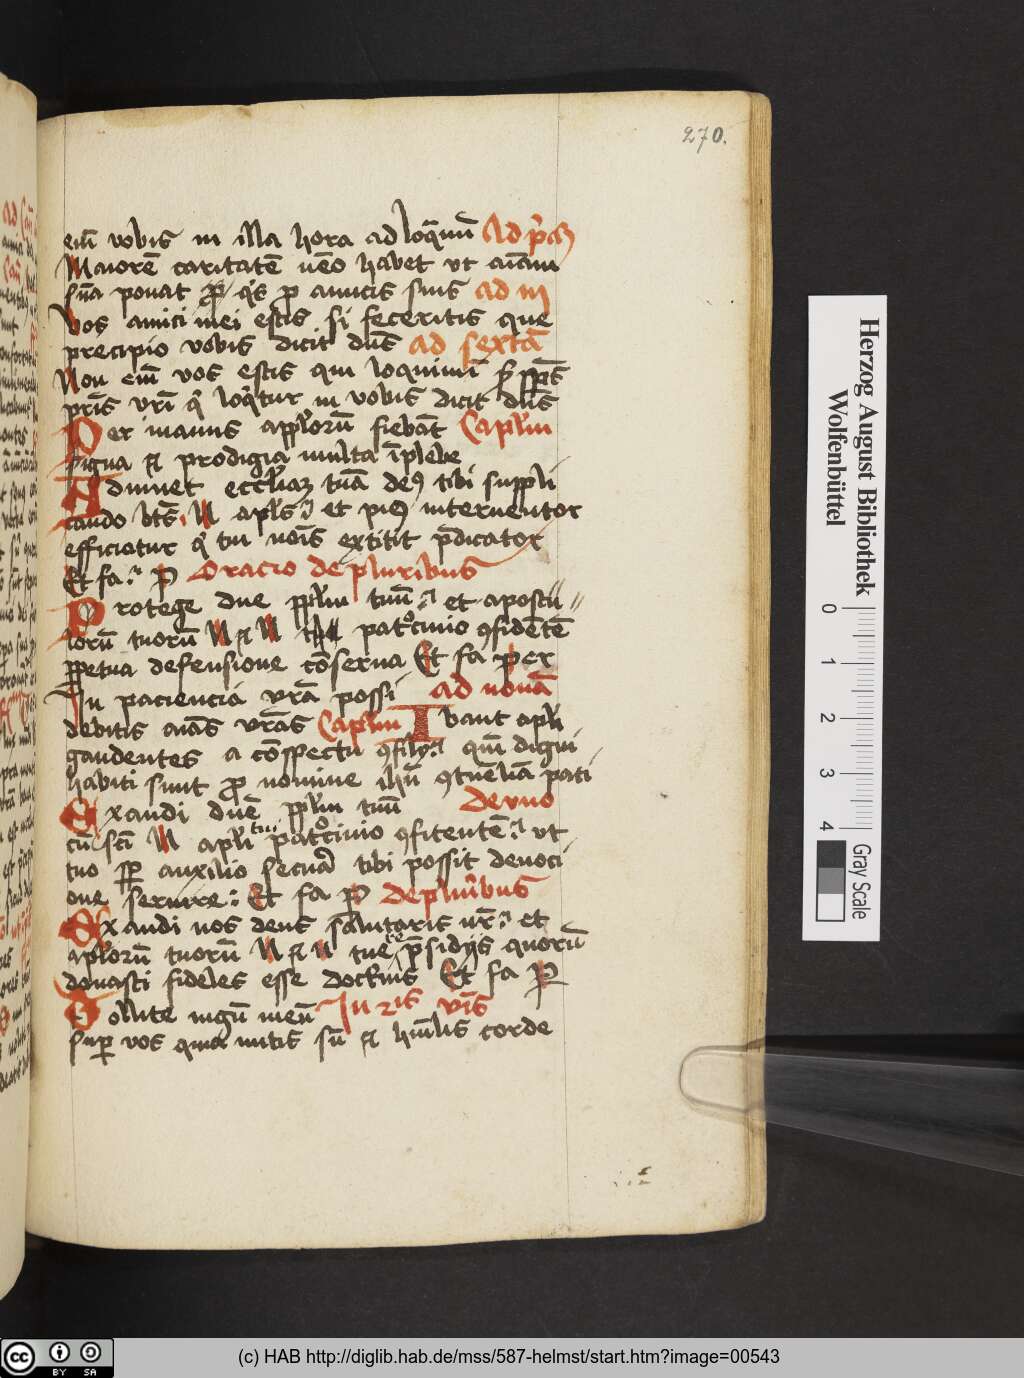 270.
em̄ vobis in illa hora ad loq̄nm̄ Ad p̄'
Maiorē caritatē nēo habet vt aīam
sūa ponat pro q's p amicis suis ad iij
Vos amici mei estis si feceritis que
precipio vobis dicit dn̄s ad sextā
Non em̄ vos estis qui loquimī sꝫ sp̄s
pr̄is vr̄i q' loq'tur in vobis dicit dn̄s
Per manus appl'orū fiebāt Capl'm
signa et prodigia multa ī plebe
Adiuuet eccl'iaꝫ tuā deꝰ tibi suppli
cando bt̄s N apl's et piꝰ interuentor
efficiatur q' tui nōis extitit p̄dicator
Et fa: P Oracio de pluribus
Protege dn̄e ppl'm tuū et aposto//
lorū tuorū N et N patr°cinio ꝯfidētē
ppetua defensione cōserua Et fa per
In paciencia vr̄a possi ad nonā
debitis aīas vr̄as Capl'm Ibant apl'i
gaudentes a cōspectu ꝯsilij qm̄ digni
habiti sunt pro nomine ih̄u ꝯtumeliā pati
Exaudi dn̄e ppl'm tuū de vno
cū sc̄i N apl'i tui patr°cinio ꝯfitentē vt
tuo sp auxilio secura tibi possit deuoci
one seruire: Et fa P de pluribus
Exaudi nos deus salutaris nr̄ et
apl'orū tuorū N et N tuere p̄sidijs quorū
donasti fideles esse doctinis Et fa P
Tollite iugū meū In 2is v̄is
sup vos quia mitis sū et hūilis corde
Herzog August Bibliothek
Wolfenbüttel
0 1 2 3 4
Gray Scale
cc BY SA
(c) HAB http://diglib.hab.de/mss/587-helmst/start.htm?image=00543